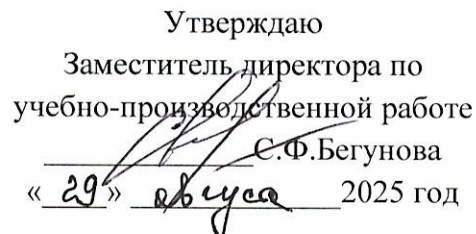 Утверждаю
Заместитель директора по
учебно-производственной работе
С.Ф.Бегунова
« 29 » августа 2025 год